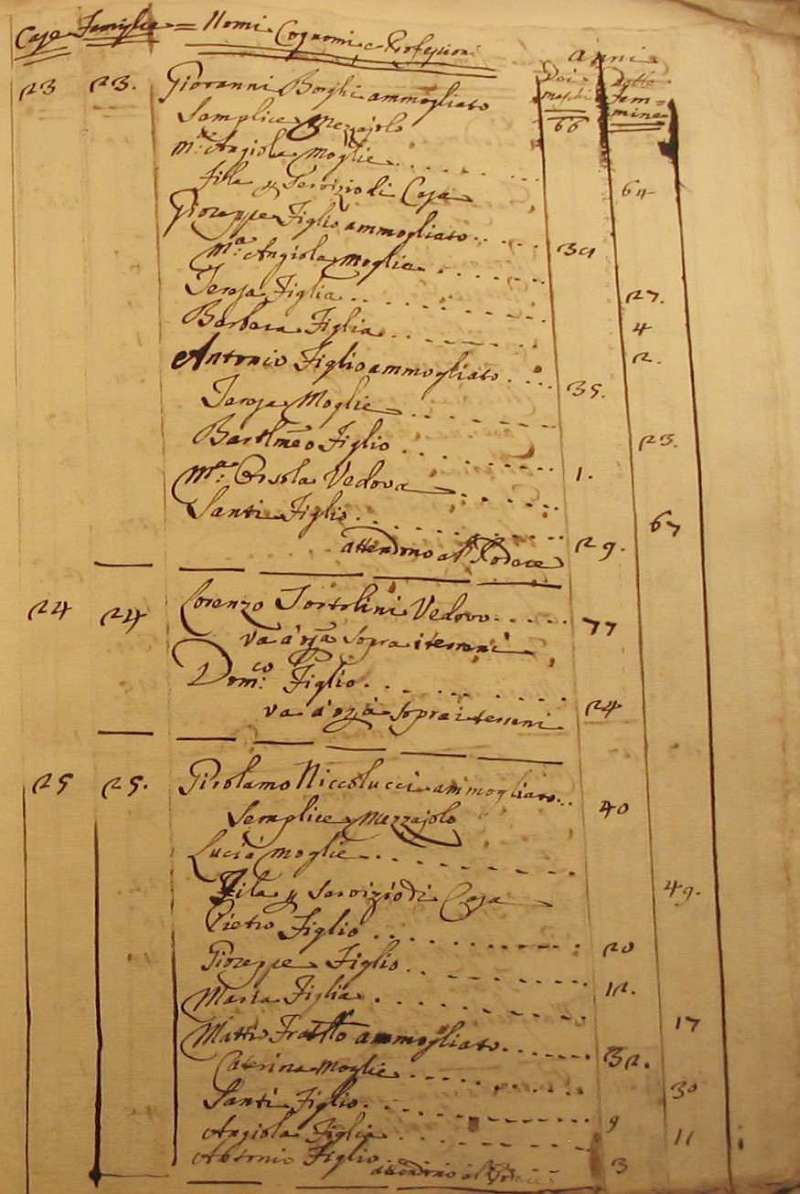 Case Famiglie = Nomi Cognomi, e Professioni anni
Dei maschi Delle Femmine
23 23. Giovanni Borghi ammogliato 66
Semplice Mezzajolo
M.ª Angiola Moglie 64
fila p Servizio di Casa
Gioseppe Figlio ammogliato 39
M.ª Angiola moglie 27.
Teresa Figlia 4
Barbara Figlia 2.
Antonio Figlio ammogliato 35.
Teresa Moglie 23.
Bartlmeo Figlio 1.
M.ª Orsola Vedova 67
Santi Figlio 29.
attendono al Podere
24 24 Lorenzo Tortolini Vedovo 77
va a opã sopra i terreni
Dom.co Figlio 24
va a opã sopra i terreni
25 25. Girolamo Niccolucci ammogliato 40
Semplice Mezzajolo
Lucia moglie 49.
Fila p Servizio di Casa
Pietro Figlio 20
Gioseppe Figlio 12.
Maria Figlia 17
Mattio Fratllo ammogliato 32.
Caterina Moglie 30
Santi Figlio 9
Angiola Figlia 11
Antonio Figlio 3
attendono al Podere